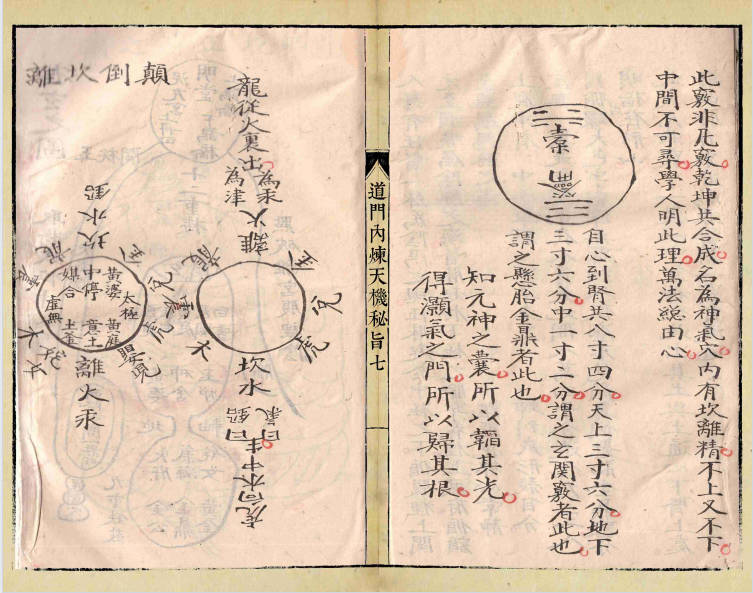 此竅非凡竅乾坤共合成名為神氣穴內有坎離精不上又不下
中間不可尋學人明此理萬法総由心
橐
籥
自心到腎共八寸四分天上三寸六分地下
三寸六分中一寸二分謂之玄関竅者此也
謂之懸胎金鼎者此也
知元神之囊所以韜其光
得灝氣之門所以歸其根
道門內煉天機秘旨七
龍從火裏出
為汞
為津
離火
龍
虎
木
坎水
鉛
氣
虎向水中生
顛倒坎離
坎水鉛
龍
虎
嬰兒
姹女
木
黃婆
中停
媒合
太極
黃庭
意土
虛無
離火汞